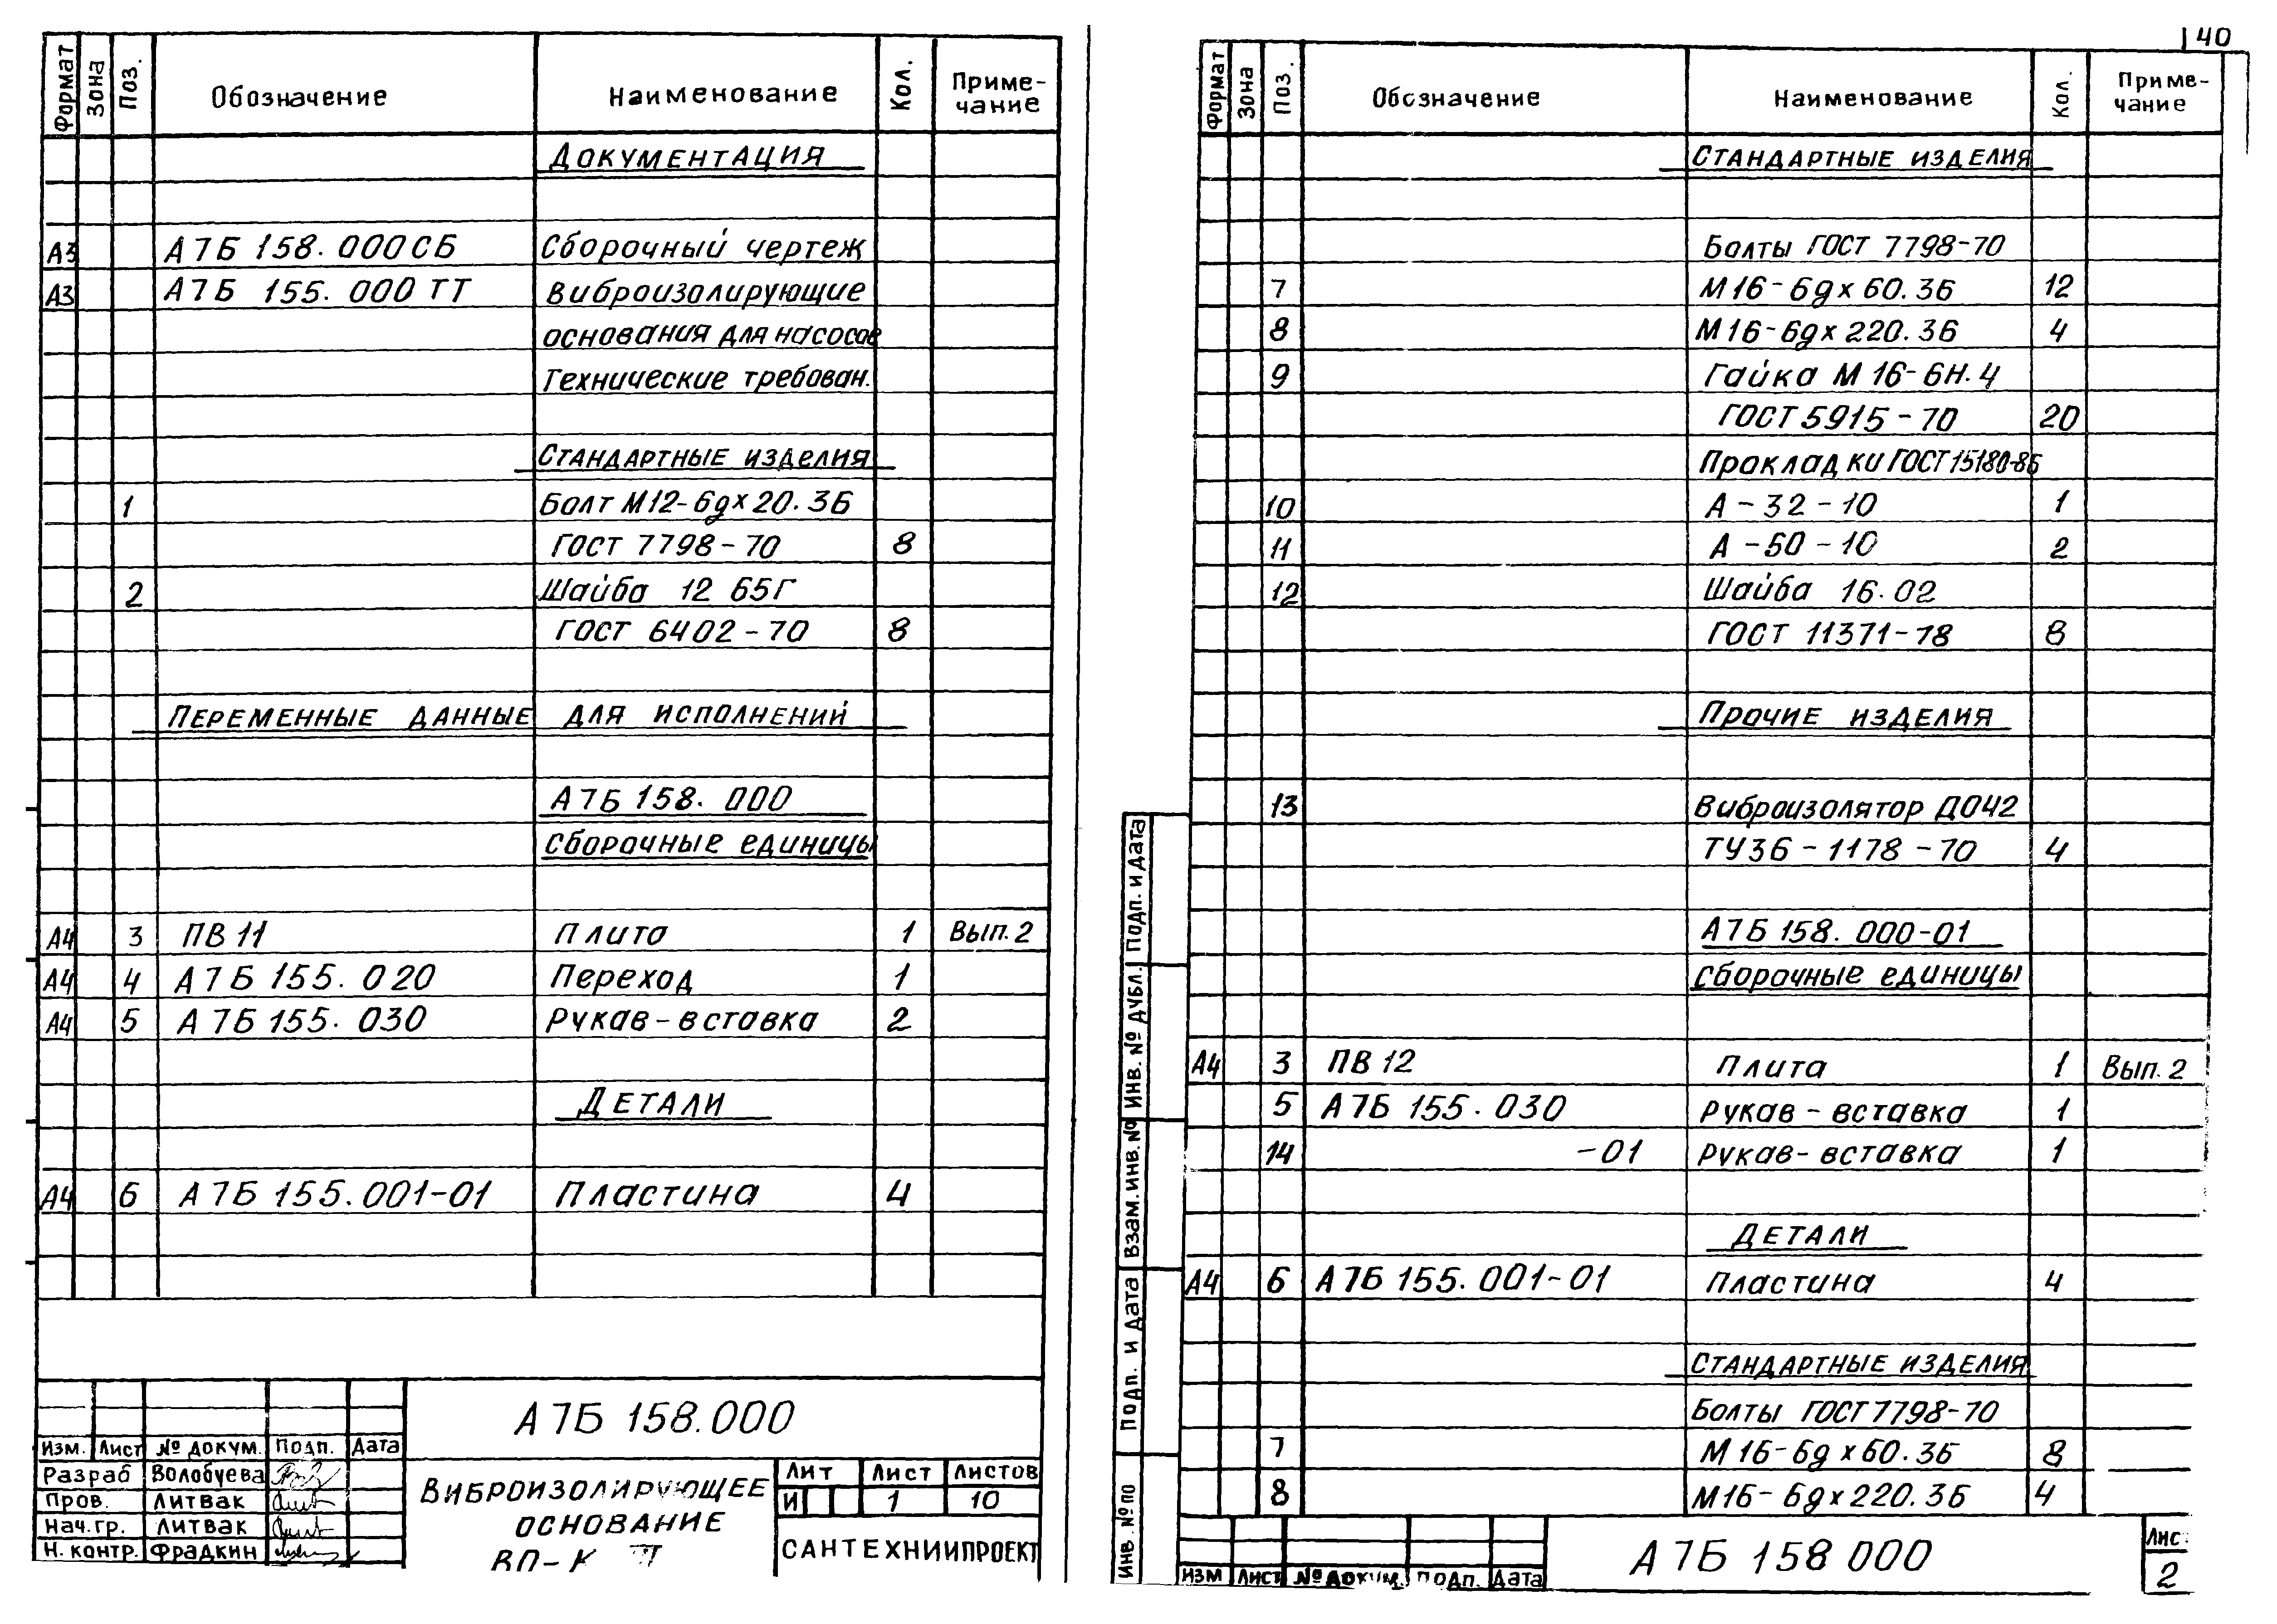 140
Формат Зона Поз. Обозначение Наименование Кол. Приме-
чание
Документация
А3 А7Б 158.000СБ Сборочный чертеж
А3 А7Б 155.000ТТ Виброизолирующие
основания для насосов
Технические требован.
Стандартные изделия
1 Болт М12-6gх20.36
ГОСТ 7798-70 8
2 Шайба 12 65Г
ГОСТ 6402-70 8
Переменные данные для исполнений
А7Б 158.000
Сборочные единицы
А4 3 ПВ11 Плита 1 Вып.2
А4 4 А7Б 155.020 Переход 1
А4 5 А7Б 155.030 Рукав-вставка 2
Детали
А4 6 А7Б 155.001-01 Пластина 4
А7Б 158.000
Изм. Лист № докум. Подп. Дата
Разраб Волобуева
Пров. Литвак
Нач.гр. Литвак
Н.контр. Фрадкин
Виброизолирующее
основание
Лит Лист Листов
И 1 10
САНТЕХНИИПРОЕКТ
Формат Зона Поз. Обозначение Наименование Кол. Приме-
чание
Стандартные изделия
Болты ГОСТ 7798-70
7 М16-6gх60.36 12
8 М16-6gх220.36 4
9 Гайка М16-6Н.4
ГОСТ 5915-70 20
Прокладки ГОСТ 15180-86
10 А-32-10 1
11 А-50-10 2
12 Шайба 16.02
ГОСТ 11371-78 8
Прочие изделия
13 Виброизолятор ДО42
ТУ36-1178-70 4
А7Б 158.000-01
Сборочные единицы
А4 3 ПВ12 Плита 1 Вып.2
5 А7Б 155.030 Рукав-вставка 1
14 -01 Рукав-вставка 1
Детали
А4 6 А7Б 155.001-01 Пластина 4
Стандартные изделия
Болты ГОСТ 7798-70
7 М16-6gх60.36 8
8 М16-6gх220.36 4
Инв. № по Подп. и дата Взам.инв.№ Инв. № дубл. Подп. и дата
Изм Лист № докум. Подп. Дата
А7Б 158 000
Лис
2